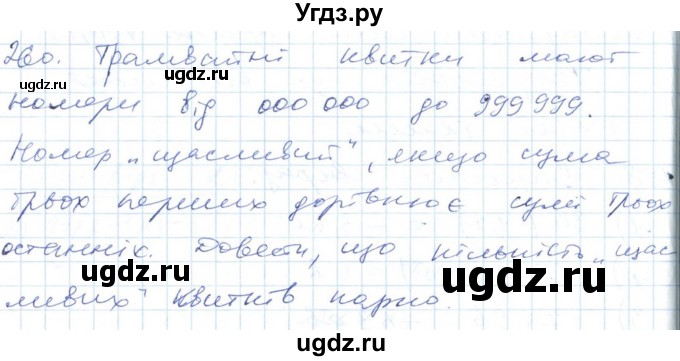 Угдз.ру
260. Трамвайні квитки мают
номери від 000 000 до 999 999.
Номер „щасливий", якщо сума
трьох перших дорівнює сумі трьох
останніх. Довести, що кількість „щас
ливих" квитків парна.
угдз.ру угдз.ру
угдз.ру угдз.ру
угдз.ру